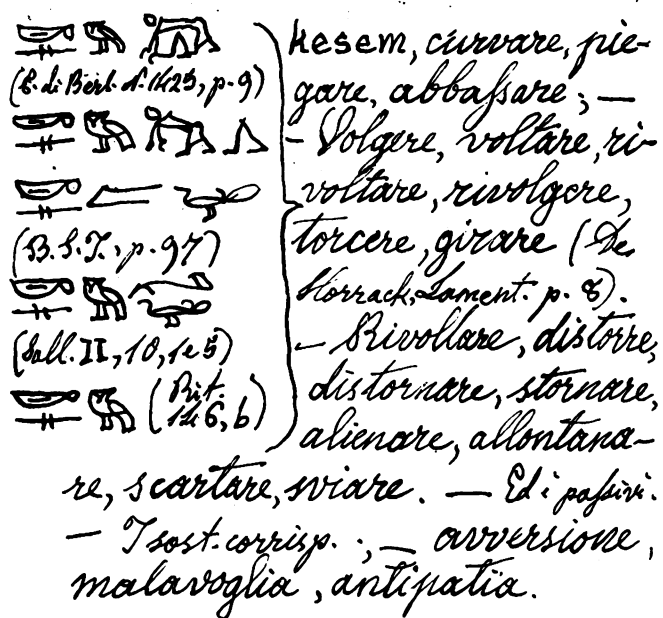 𓎡𓊃𓅓
𓎡𓊃𓅓
𓎡𓊃
(B. S. T., p. 97)
𓎡𓊃𓅓
(Sall. II, 10,
𓎡𓊃𓅓 (Rit.
kesem, curvare, pie-
gare, abbaſsare; —
- Volgere, voltare, ri-
voltare, rivolgere,
torcere, girare (De
Horrack, Lament. p. 8).
— Rivoltare, distorre,
distornare, stornare,
alienare, allontana-
re, scartare, sviare. — Ed i paſsivi.
— I sost. corrisp. ; — avversione,
malavoglia, antipatia.